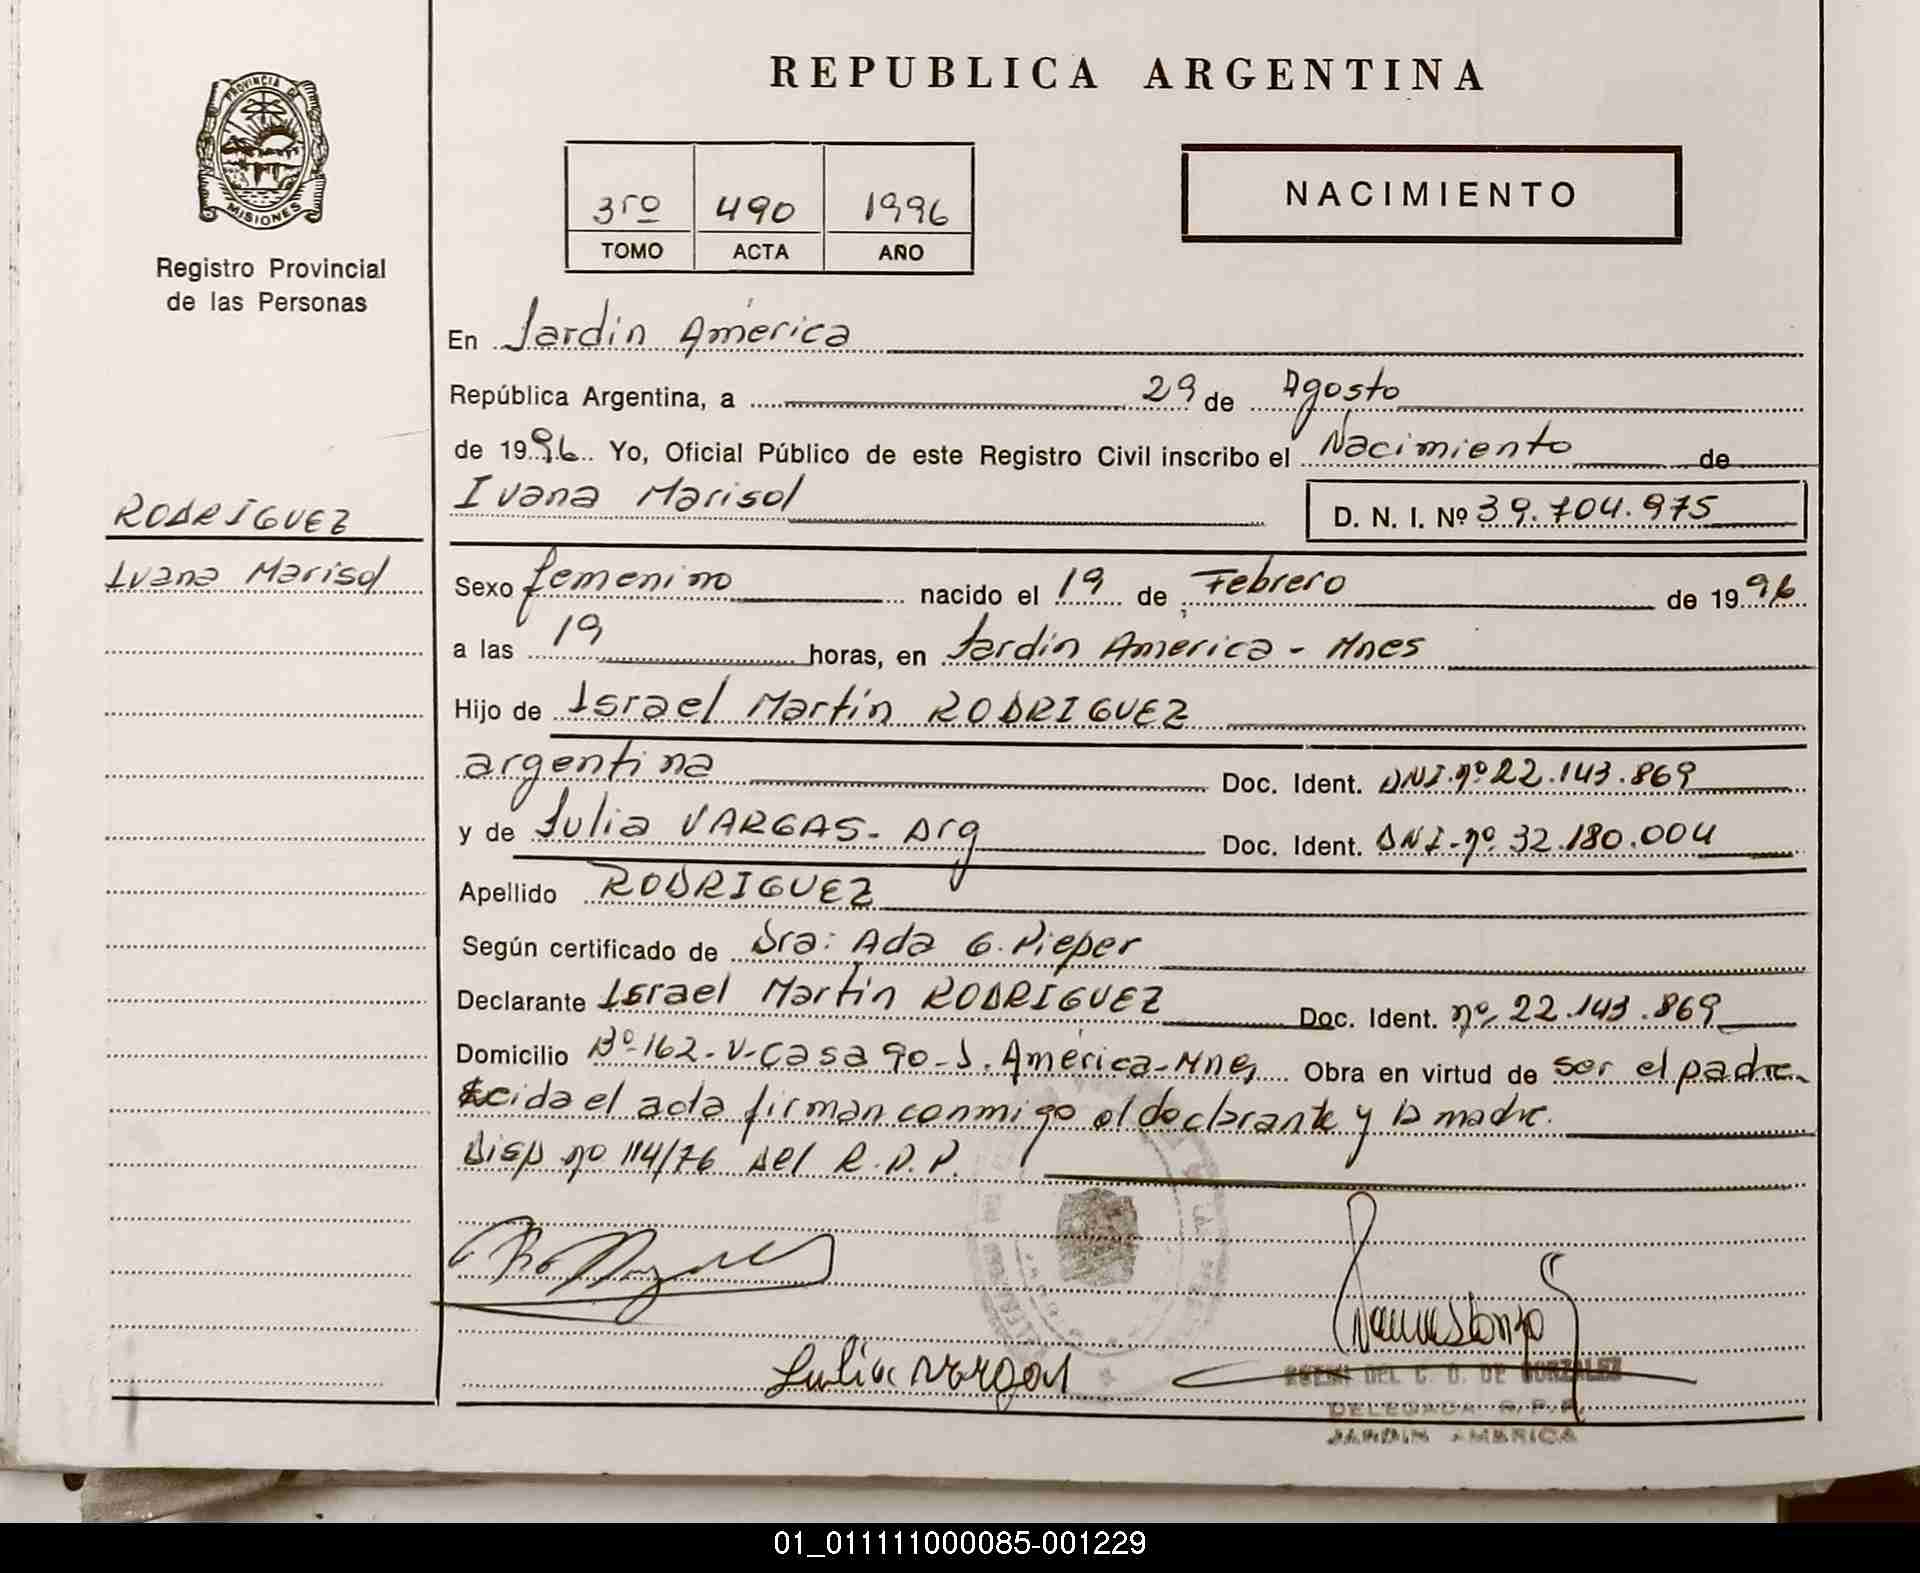 REPUBLICA ARGENTINA
PROVINCIA DE
MISIONES
Registro Provincial
de las Personas
3ro 490 1996
TOMO ACTA AÑO
NACIMIENTO
En Jardin América
República Argentina, a 29 de Agosto
de 1996. Yo, Oficial Público de este Registro Civil inscribo el Nacimiento de
RODRIGUEZ
Ivana Marisol
Ivana Marisol D. N. I. Nº 39.704.975
Sexo femenino nacido el 19 de Febrero de 1996
a las 19 horas, en Jardin America - Mnes
Hijo de Israel Martín RODRIGUEZ
argentina Doc. Ident. DNI.nº 22.143.869
y de Julia VARGAS- Arg Doc. Ident. DNI-nº 32.180.004
Apellido RODRIGUEZ
Según certificado de Dra: Ada G. Pieper
Declarante Israel Martín RODRIGUEZ Doc. Ident. nº 22.143.869
Domicilio Bº-162-V-Casa 90-J. América-Mnes Obra en virtud de ser el padre
el acta firman conmigo el declarante y la madre.
Disp nº 114/76 del R.P.P.
Julia Vargas
DEL C. D. DE GONZALEZ
DELEGADA R.P.P.
JARDIN AMERICA
01_011111000085-001229